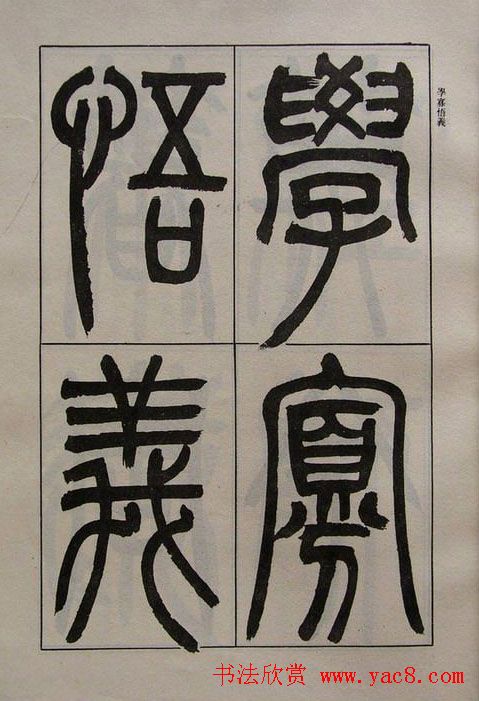 學寡悟義
學寡
悟義
书法欣赏 www.yac8.com